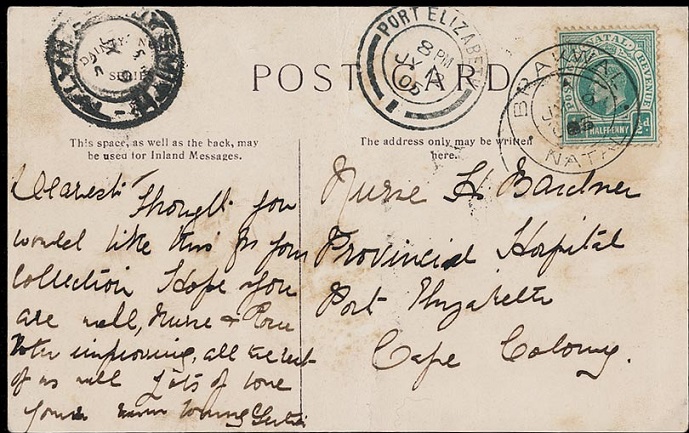 POST CARD
PORT ELIZABETH
8 PM
JY
05
1
NATAL
POSTAGE
REVENUE
HALF-PENNY
NATAL
This space, as well as the back, may
be used for Inland Messages.
The address only may be written
here.
Dearest Thought you
would like this for your
Collection Hope you
are well, Nurse &
improving, all the rest
of us well Lots of love
Nurse H Gardner
Provincial Hospital
Port Elizabeth
Cape Colony.